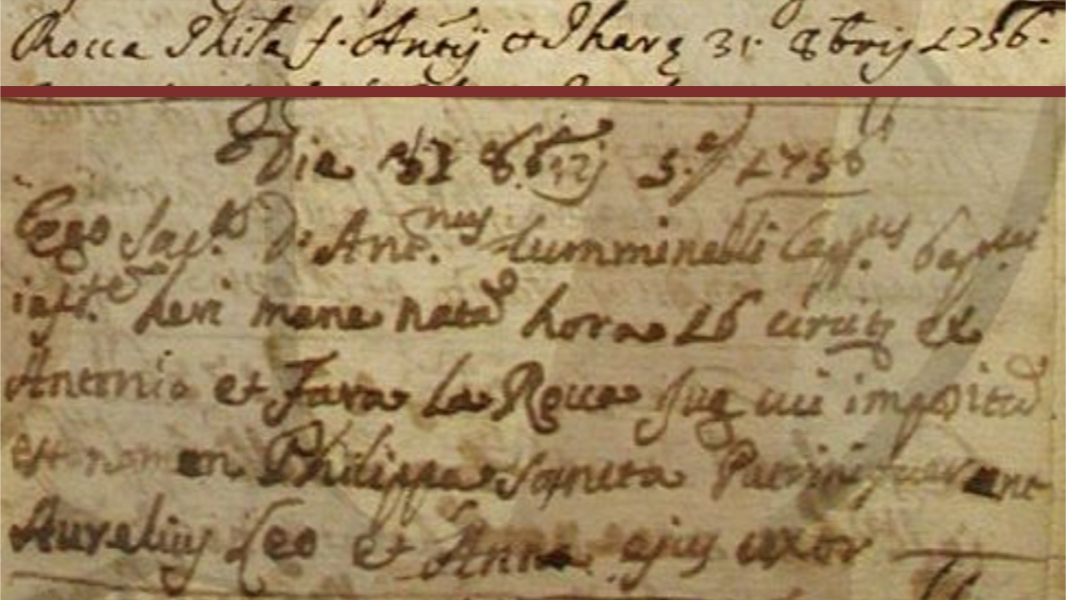 Rocca Phita f. Antÿ et Tharę 31 8bris 1756.
Die 31 8bris 5.ę 1756
Ego Sacr.dos D. Ant.nus Lumminelli Capp.nus bap.
inf.tem heri mane natā hora 16 circiter ex
Antonio et Fara La Rocca Jug. cui impositū
est nomen Philippa Sancta Patrini fuerunt
Aurelius Leo et Anna ejus uxor